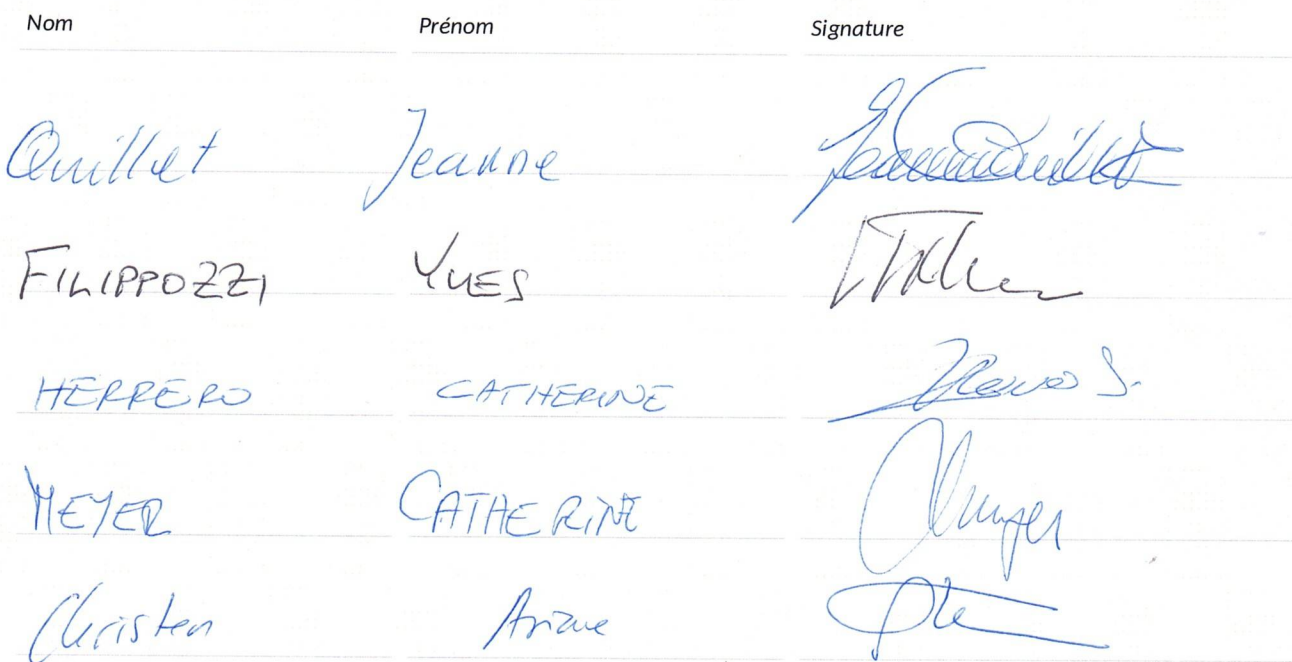 Nom Prénom Signature
Quillet Jeanne
FILIPPOZZI YVES
HERRERO CATHERINE
MEYER CATHERINE
Christen Ariane